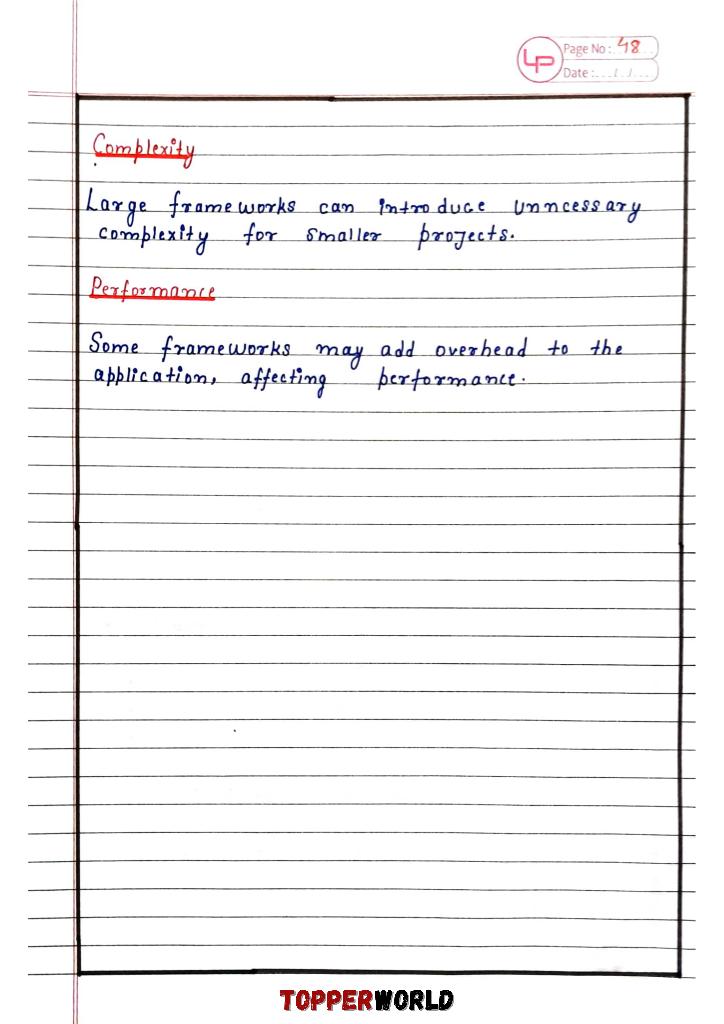 LP
Page No: 48
Date: / /
Complexity
Large frameworks can introduce unncessary
complexity for smaller projects.
Performance
Some frameworks may add overhead to the
application, affecting performance.
TOPPERWORLD